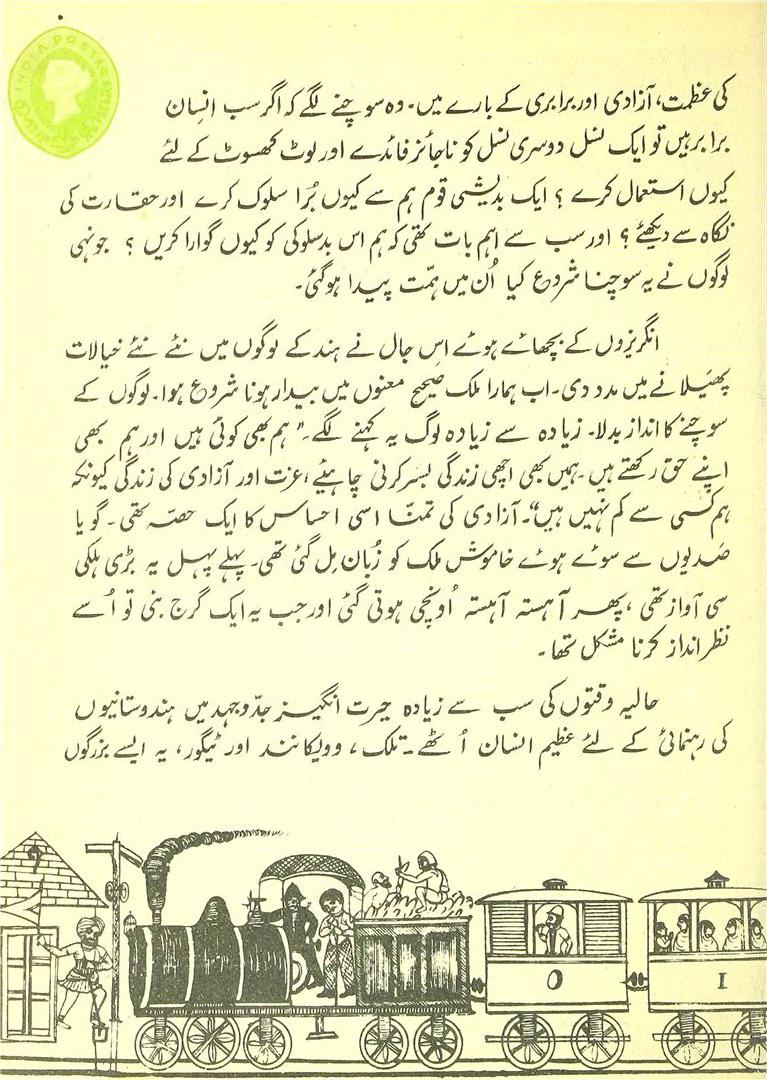 INDIA POSTAGE
کی عظمت، آزادی اور برابری کے بارے میں۔ وہ سوچنے لگے کہ اگر سب انسان
برابر ہیں تو ایک نسل دوسری نسل کو ناجائز فائدے اور لوٹ کھسوٹ کے لئے
کیوں استعمال کرے ؟ ایک بدیشی قوم ہم سے کیوں بُرا سلوک کرے اور حقارت کی
نگاہ سے دیکھئے ؟ اور سب سے اہم بات تھی کہ ہم اس بدسلوکی کو کیوں گوارا کریں ؟ جونہی
لوگوں نے یہ سوچنا شروع کیا اُن میں ہمّت پیدا ہوگئی۔
انگریزوں کے بچھائے ہوئے اس جال نے ہند کے لوگوں میں نئے نئے خیالات
پھیلانے میں مدد دی۔ اب ہمارا ملک صحیح معنوں میں بیدار ہونا شروع ہوا۔ لوگوں کے
سوچنے کا انداز بدلا۔ زیادہ سے زیادہ لوگ یہ کہنے لگے۔ "ہم بھی کوئی ہیں اور ہم بھی
اپنے حق رکھتے ہیں۔ ہمیں بھی اچھی زندگی بسر کرنی چاہیئے، عزت اور آزادی کی زندگی کیونکہ
ہم کسی سے کم نہیں ہیں"۔ آزادی کی تمنّا اسی احساس کا ایک حصّہ تھی۔ گویا
صَدیوں سے سوئے ہوئے خاموش ملک کو زُبان مِل گئی تھی۔ پہلے پہل یہ بڑی ہلکی
سی آواز تھی، پھر آہستہ آہستہ اُونچی ہوتی گئی اور جب یہ ایک گرج بنی تو اُسے
نظر انداز کرنا مشکل تھا۔
حالیہ وقتوں کی سب سے زیادہ حیرت انگیز جدّوجہد میں ہندوستانیوں
کی رہنمائی کے لئے عظیم انسان اُٹھے۔ تلک، وویکانند اور ٹیگور، یہ ایسے بزرگوں
O
I